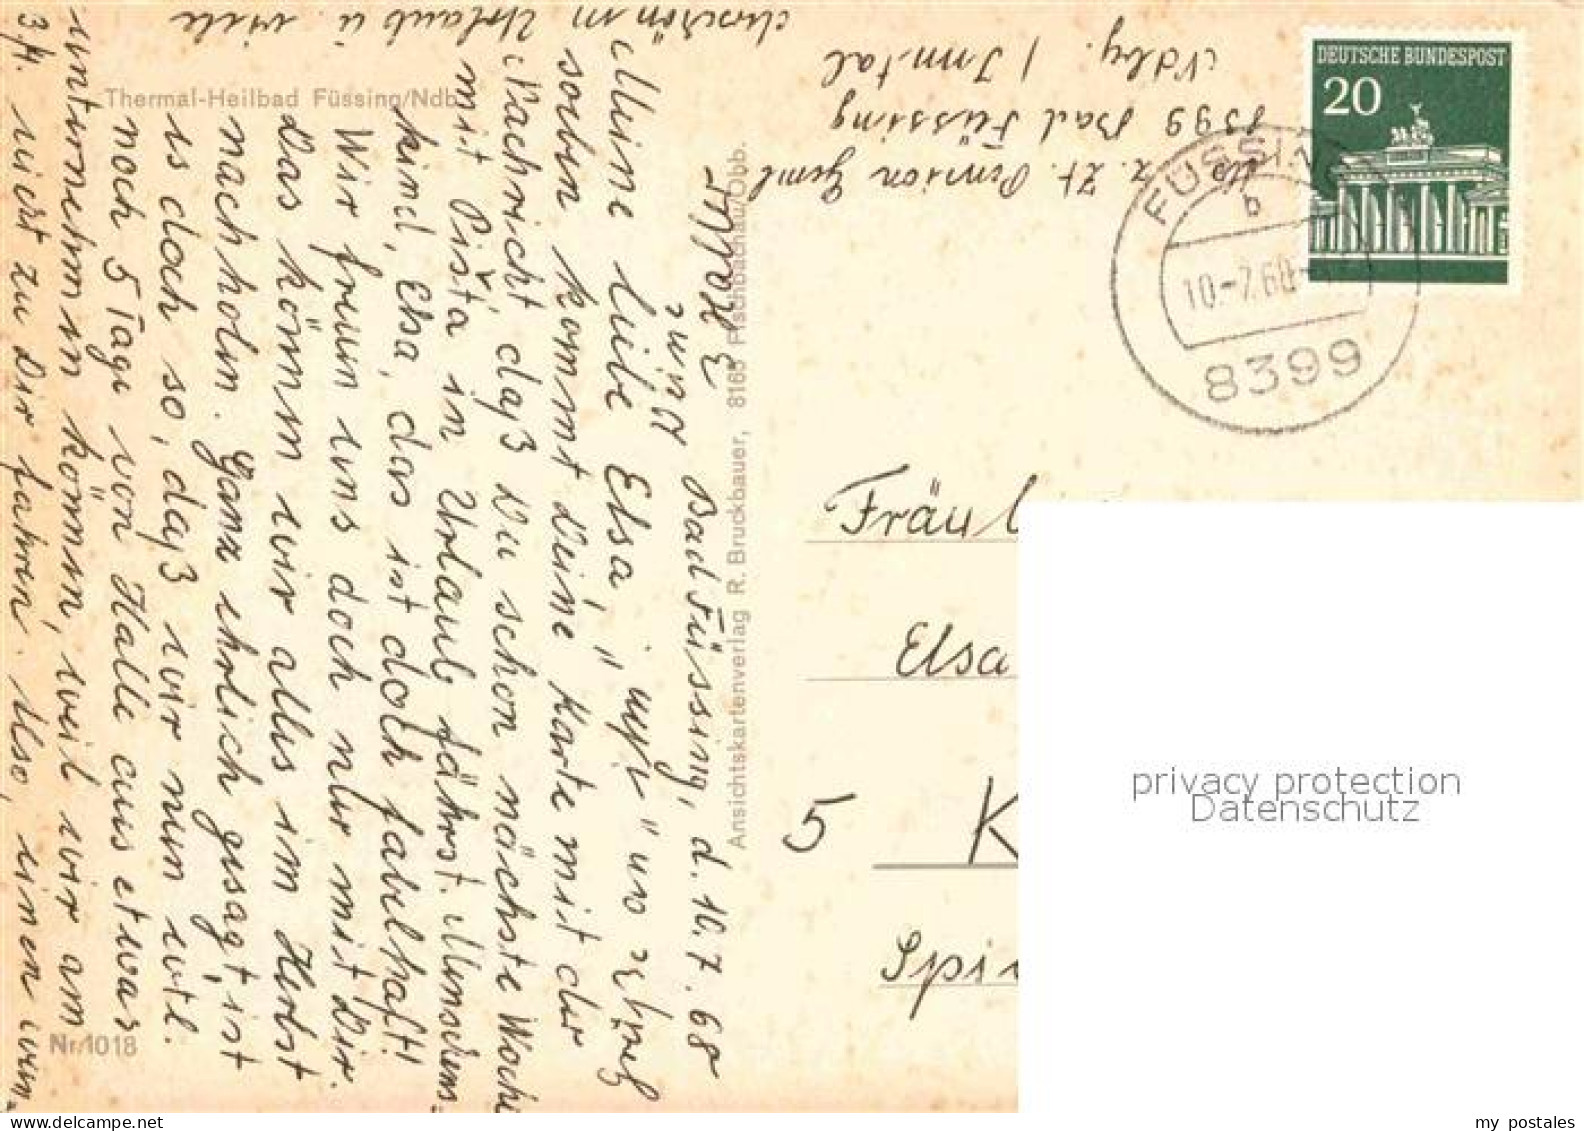 Thermal-Heilbad Füssing/Ndb.
Bad Füssing, d. 10.7.68
Meine liebe Elsa,
soeben kommt Deine Karte mit der
Nachricht, daß Du schon nächste Woche
mit Pišta in Urlaub fährst. Menschens-
kind, Elsa, das ist doch fabelhaft!
Wir freuen uns doch nur mit Dir.
Das können wir alles im Herbst
nachholen. Ganz ehrlich gesagt, ist
es doch so, daß wir nun evtl.
noch 5 Tage von Halle aus etwas
unternehmen können, weil wir am
3./4. nicht zu Dir fahren. Also, einen wun-
derschönen Urlaub u. viele
Grüße
z. Zt. Pension
8399 Bad Füssing
Ndby. / Inntal
Ansichtskartenverlag R. Bruckbauer, 8165 Fischbachau/Obb.
Nr. 1018
DEUTSCHE BUNDESPOST
20
FÜSSING
b
10.-7.68
8399
Fräul
Elsa
5 K
Spi
privacy protection
Datenschutz
my postales